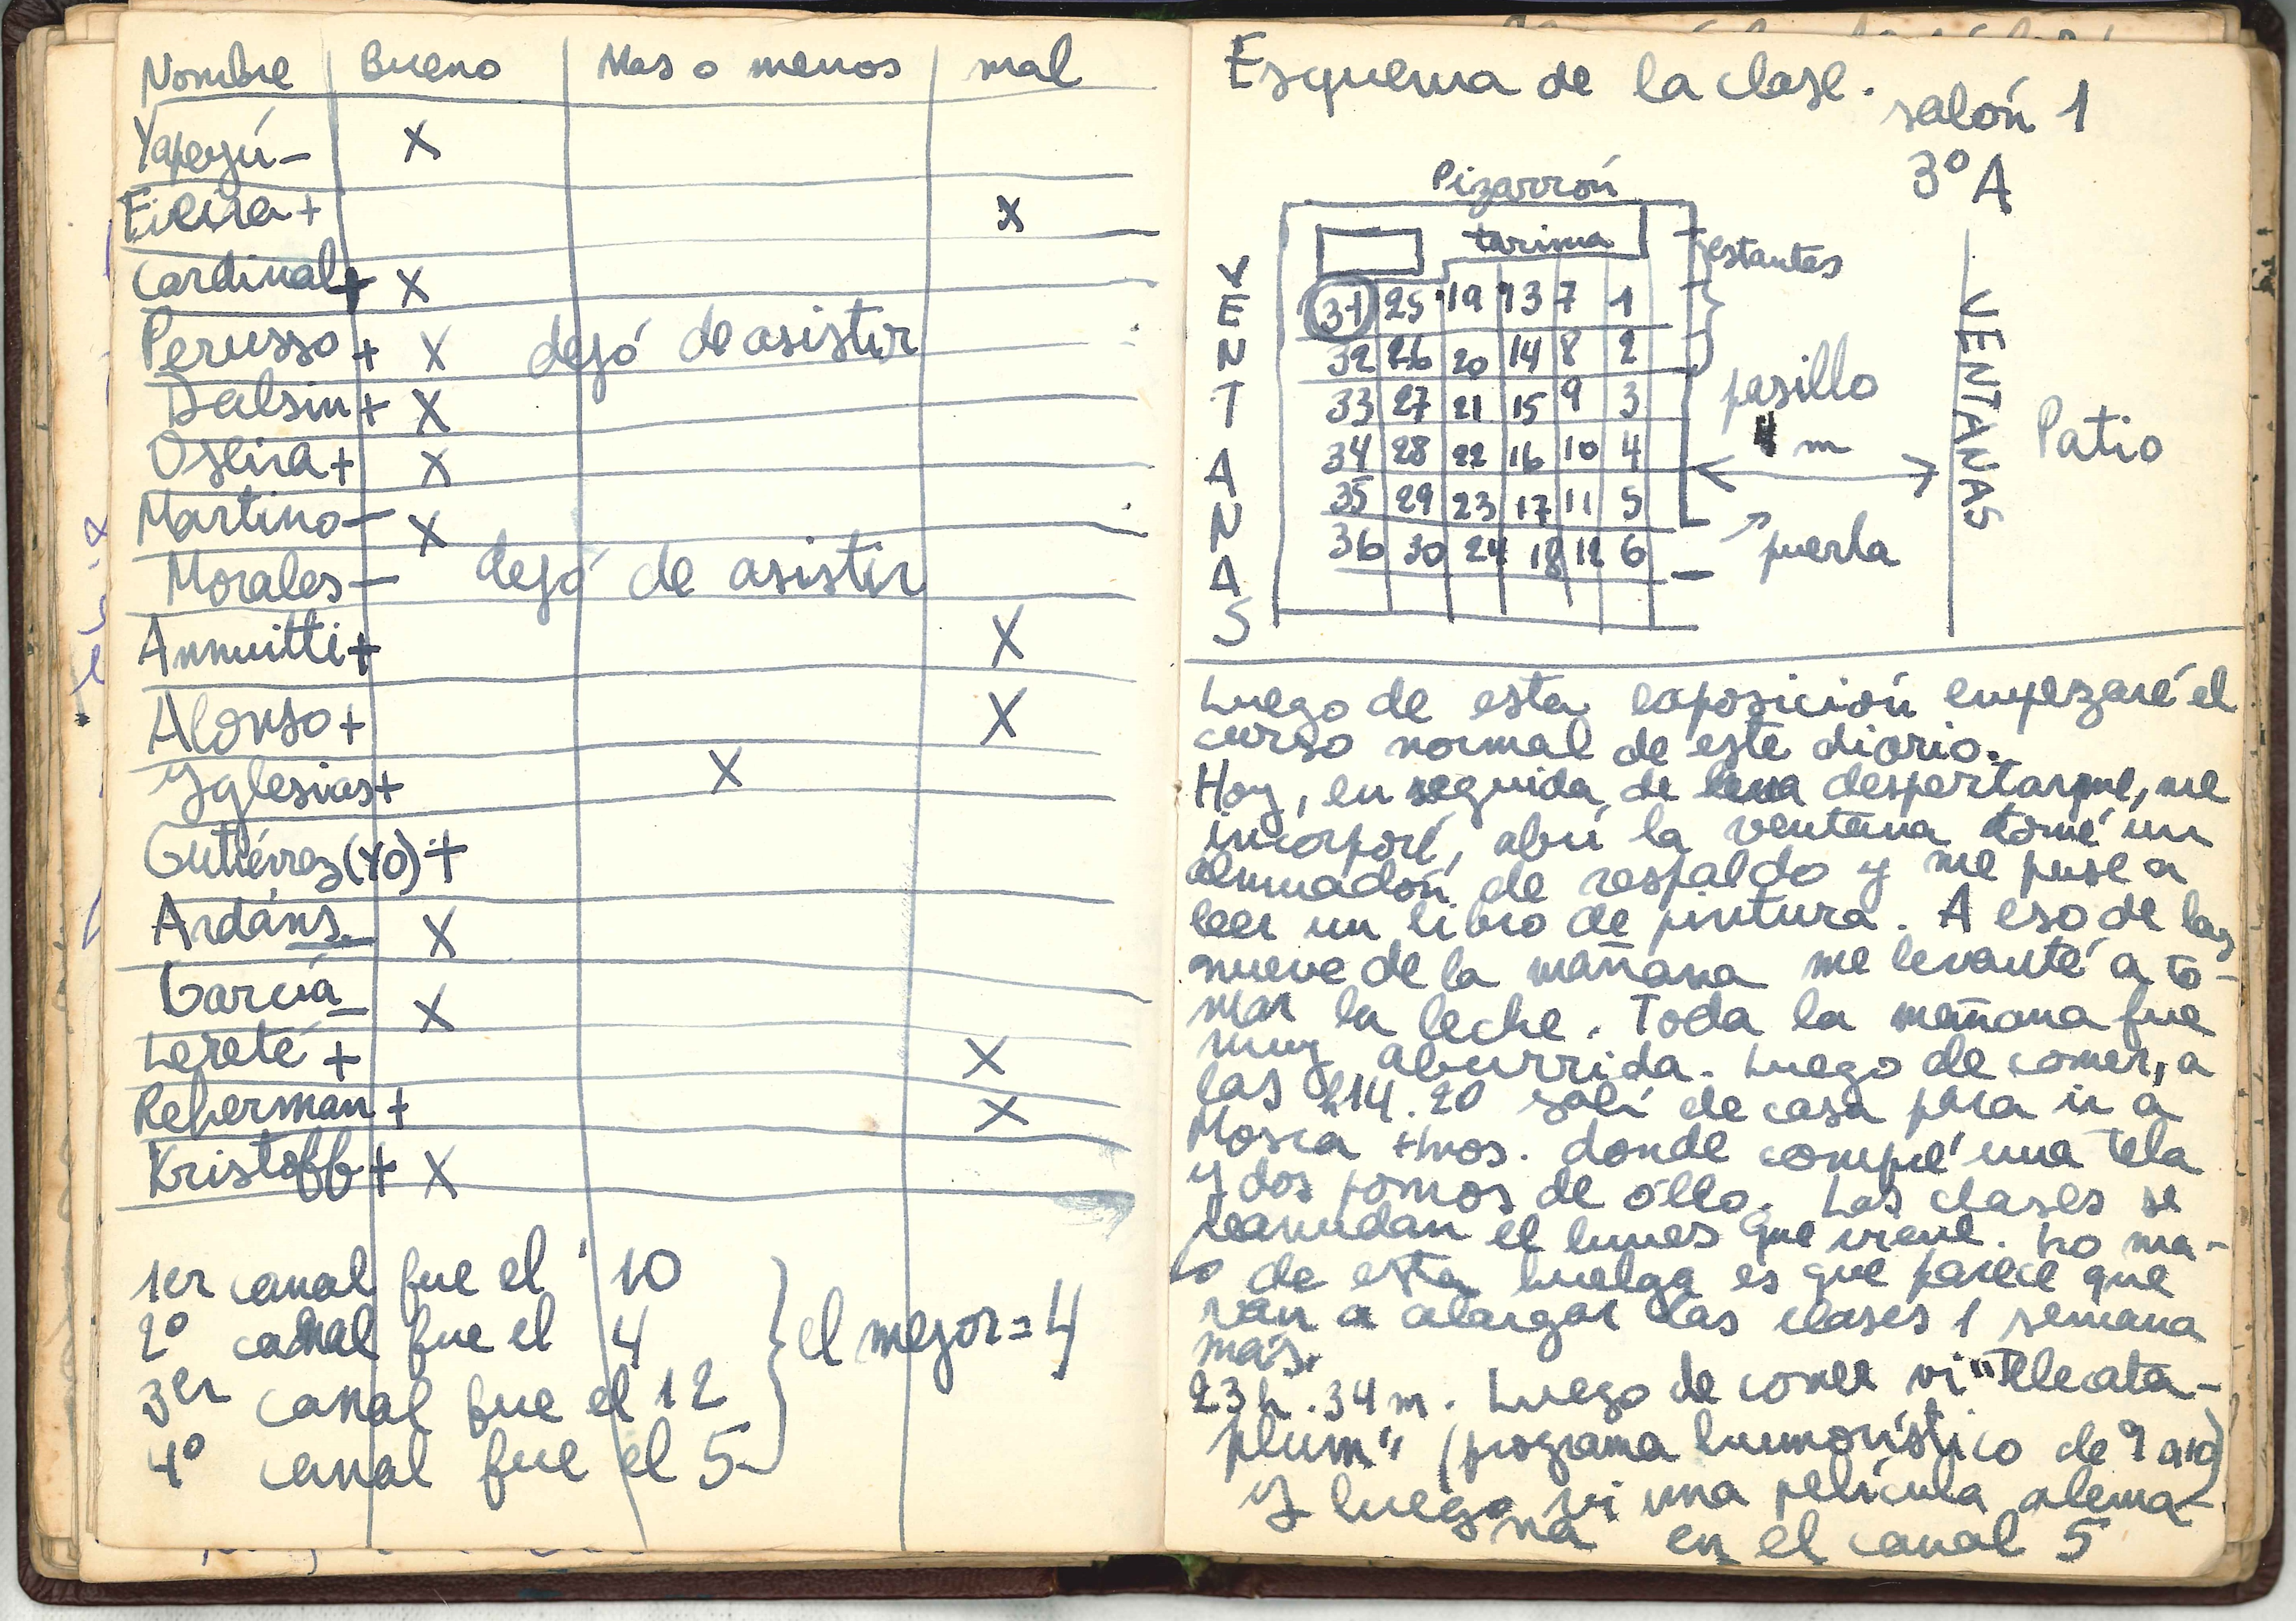 Nombre Bueno Mas o menos mal
Yapeyú - X
Eilira + X
Cardinal + X
Perusso + X dejó de asistir
Dalsin + X
Oseira + X
Martino - X
Morales - dejó de asistir
Annuitti + X
Alonso + X
Yglesias + X
Gutiérrez (YO) +
Ardáns - X
García - X
Lereté + X
Reherman + X
Kristoff + X
1er canal fue el 10
2º canal fue el 4
3er canal fue el 12
4º canal fue el 5
el mejor = 4
Esquema de la clase.
salón 1
3º A
Pizarrón
tarima
estantes
VENTANAS
31 25 19 13 7 1
32 26 20 14 8 2
33 27 21 15 9 3
34 28 22 16 10 4
35 29 23 17 11 5
36 30 24 18 12 6
pasillo
4 m
puerta
VENTANAS
Patio
Luego de esta exposición empezaré el
curso normal de este diario.
Hoy, en seguida de despertarme, me
incorporé, abrí la ventana tomé un
almuadón de respaldo y me puse a
leer un libro de pintura. A eso de las
nueve de la mañana me levanté a to-
mar la leche. Toda la mañana fue
muy aburrida. Luego de comer, a
las h14.20 salí de casa para ir a
Mosca Hnos. donde compré una tela
y dos pomos de óleo. Las clases se
reanudan el lunes que viene. Lo ma-
lo de esta huelga es que parece que
van a alargar las clases 1 semana
más.
23 h. 34 m. Luego de comer vi "Telecata-
plum" (programa humorístico de 9 a 10)
Y luego vi una película alema-
na en el canal 5